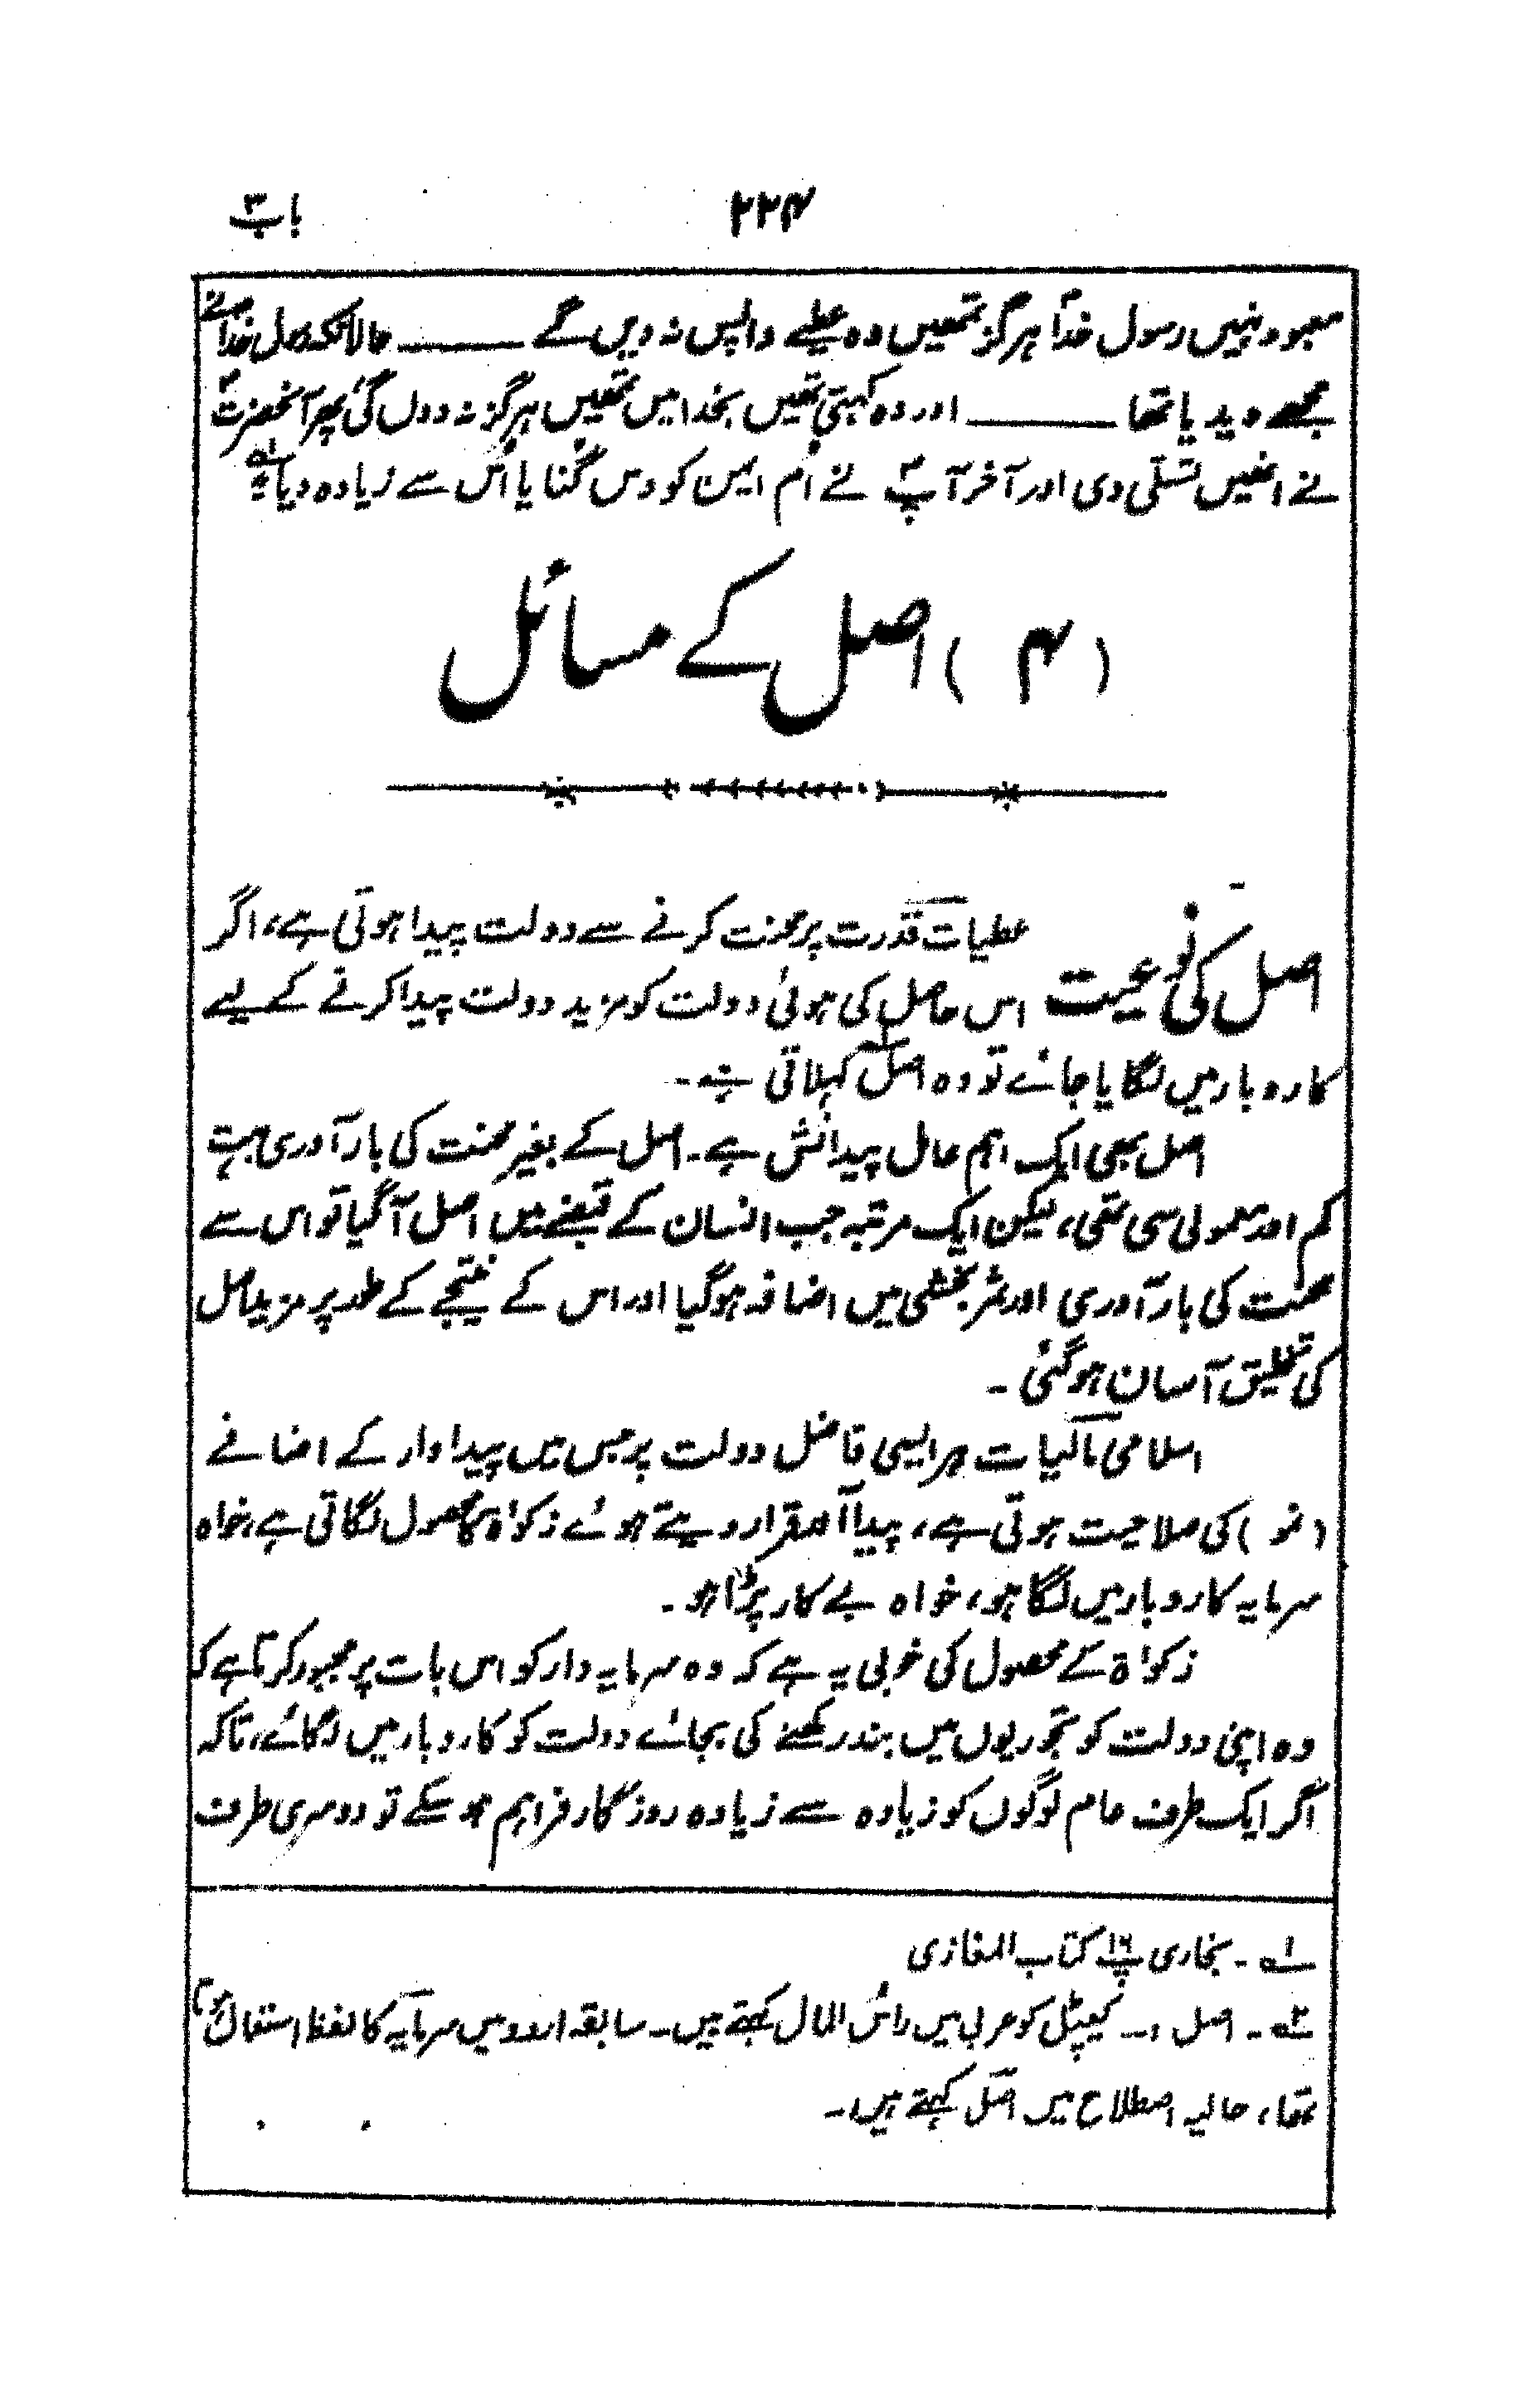 باب ۳
۲۲۴
معبود نہیں رسول خداؐ ہرگز تمھیں وہ عطیے واپس نہ دیں گے ——— حالانکہ رسول خداؐ نے
مجھے دیدیا تھا ——— اور وہ کہتی تھیں بخدا میں تمھیں ہرگز نہ دوں گی پھر آنحضرتؐ
نے انھیں تسلی دی اور آخر آپؐ نے اُم ایمن کو دس گُنا یا اُس سے زیادہ دیا ۱؎
(۴) اصل کے مسائل
اصل کی نوعیت عطیات قدرت پر محنت کرنے سے دولت پیدا ہوتی ہے، اگر
اس حاصل کی ہوئی دولت کو مزید دولت پیدا کرنے کے لیے
کاروبار میں لگایا جائے تو وہ اصل ۲؎ کہلاتی ہے۔
اصل بھی ایک اہم عامل پیدائش ہے۔ اصل کے بغیر محنت کی بارآوری بہت
کم اور معمولی سی تھی، لیکن ایک مرتبہ جب انسان کے قبضے میں اصل آگیا تو اس سے
محنت کی بارآوری اور ثمر بخشی میں اضافہ ہوگیا اور اس کے نتیجے کے طور پر مزید اصل
کی تخلیق آسان ہوگئی۔
اسلامی مالیات ہر ایسی فاضل دولت پر جس میں پیداوار کے اضافے
(نمو) کی صلاحیت ہوتی ہے، پیداآور قرار دیتے ہوئے زکوٰۃ کا محصول لگاتی ہے، خواہ
سرمایہ کاروبار میں لگا ہو، خواہ بے کار پڑا ہو۔
زکوٰۃ کے محصول کی خوبی یہ ہے کہ وہ سرمایہ دار کو اس بات پر مجبور کرتا ہے کہ
وہ اپنی دولت کو تجوریوں میں بند رکھنے کی بجائے دولت کو کاروبار میں لگائے، تاکہ
اگر ایک طرف عام لوگوں کو زیادہ سے زیادہ روزگار فراہم ہو سکے تو دوسری طرف
۱؎ ۔ بخاری پ۱۶ کتاب المغازی
۲؎ ۔ اصل :۔ کیپٹل کو عربی میں راسُ المال کہتے ہیں۔ سابقہ اردو میں سرمایہ کا لفظ استعمال ہوتا
تھا، حالیہ اصطلاح میں اصل کہتے ہیں۔